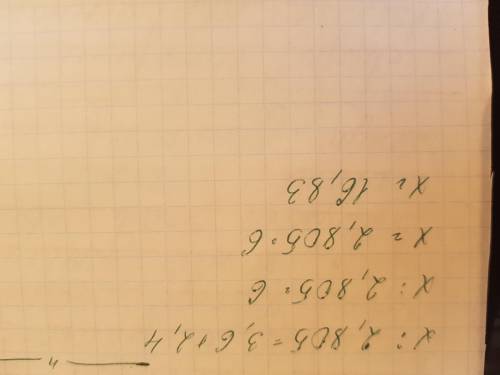 x : 2,805 = 3,6 + 2,4
x : 2,805 = 6
x = 2,805 · 6
x = 16,83